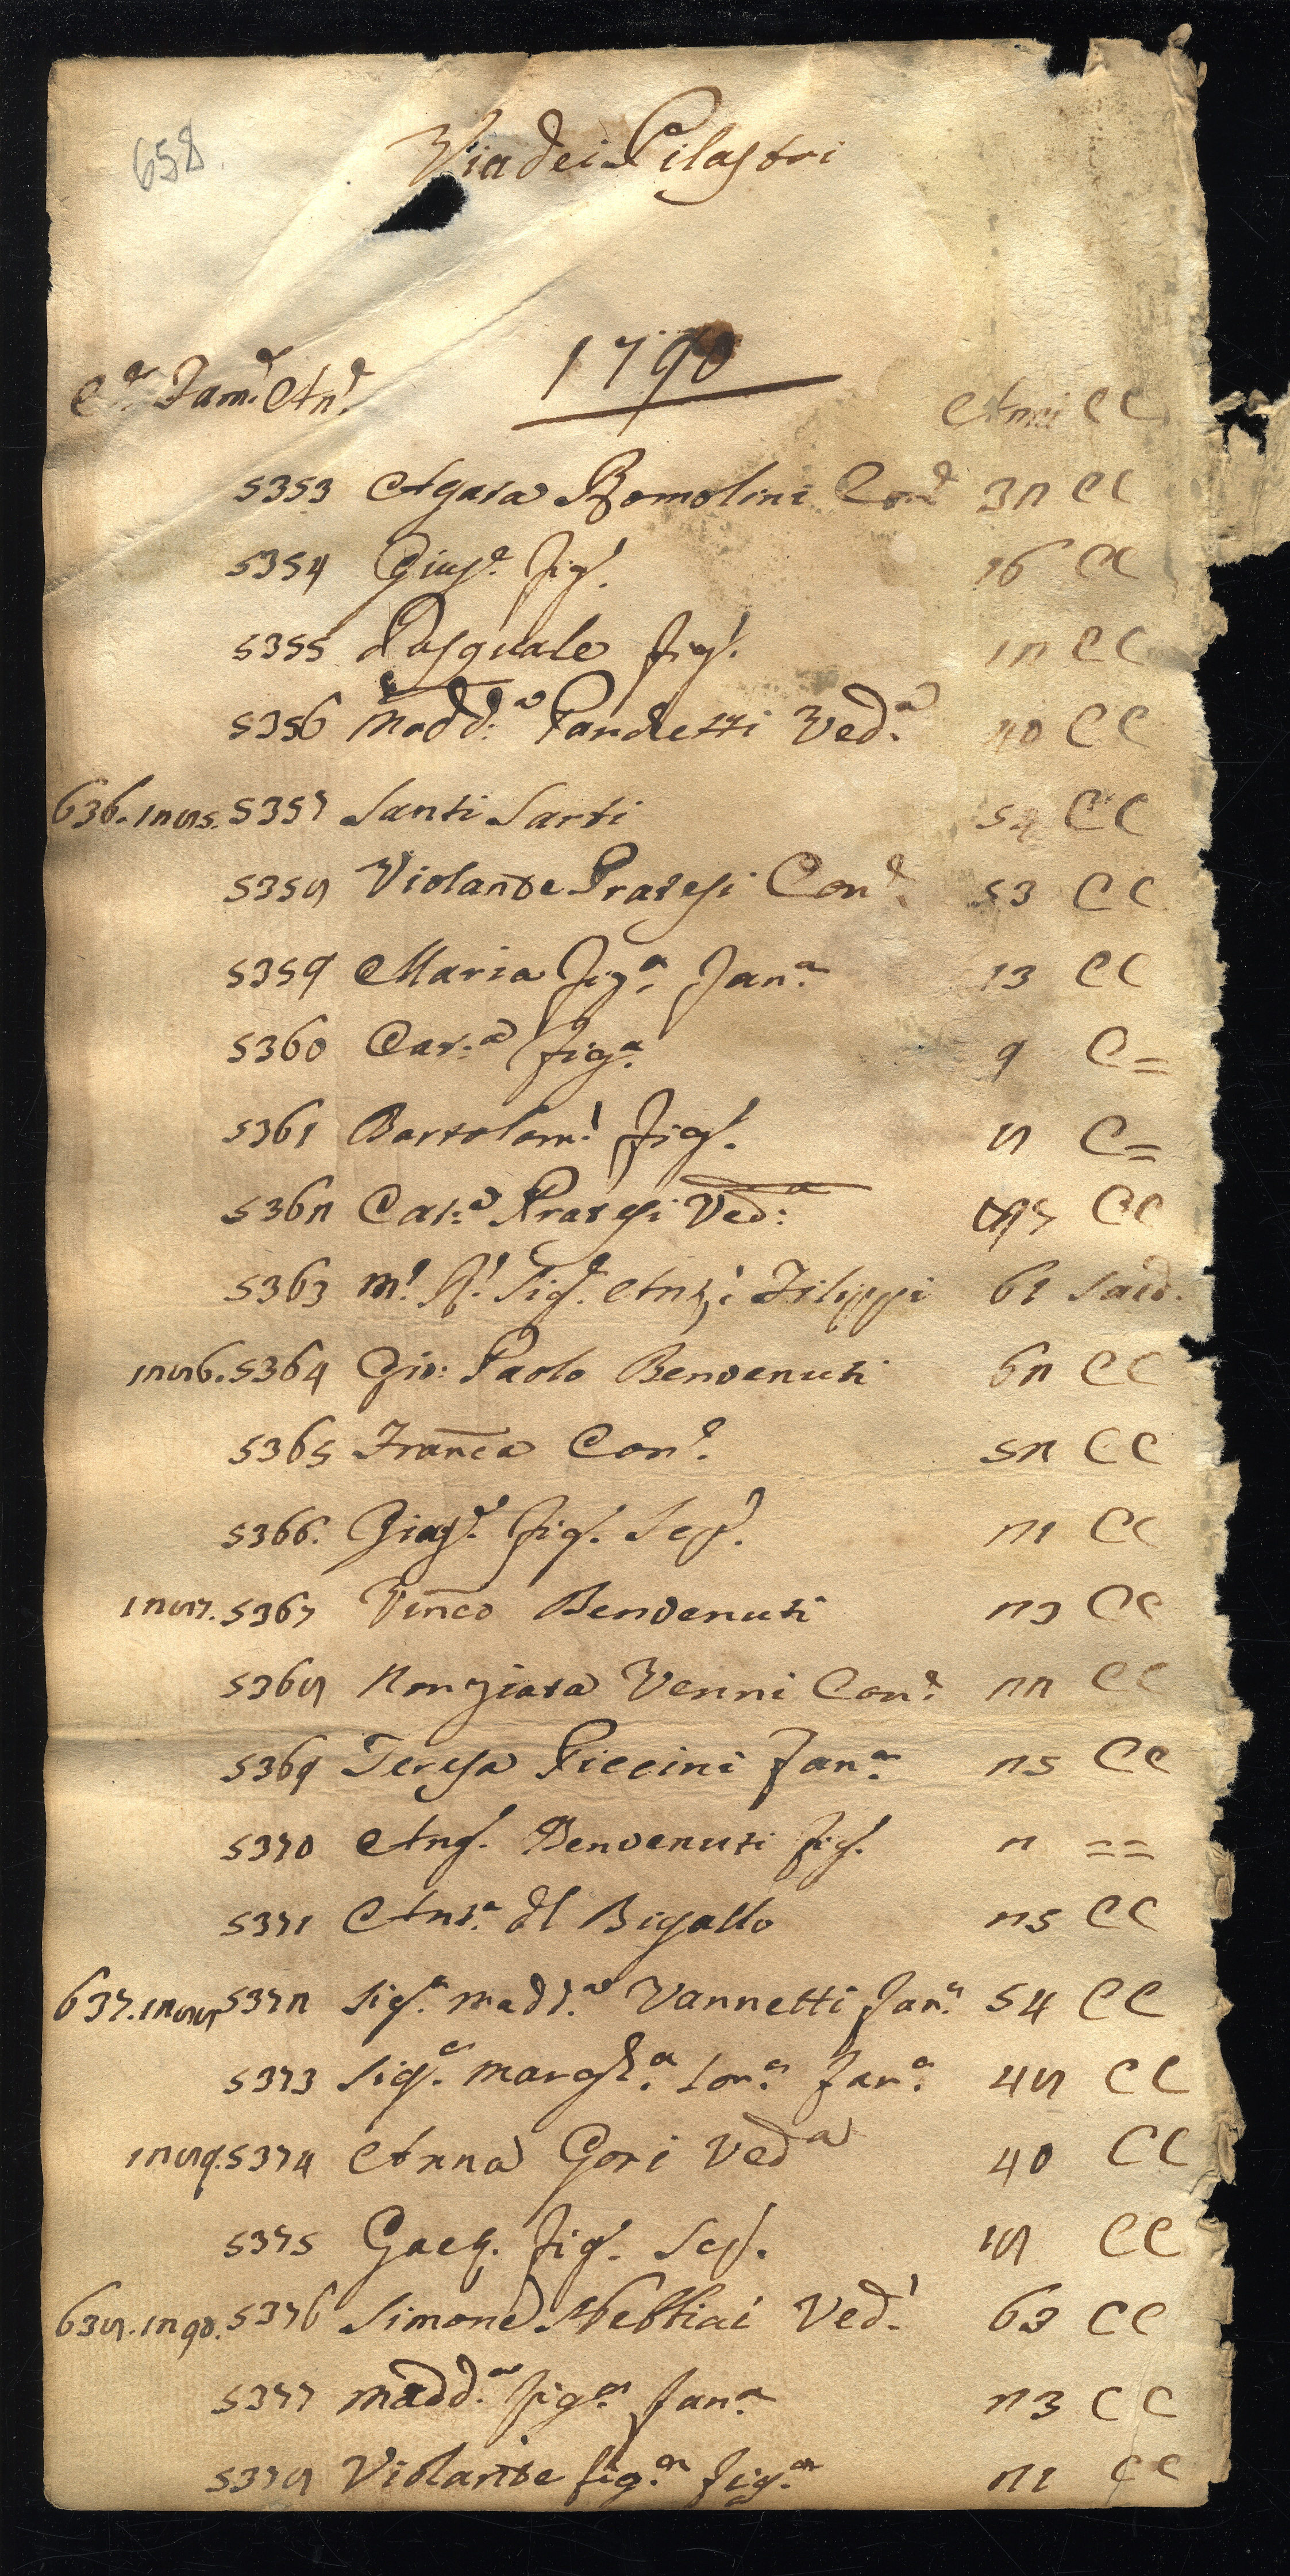 658.
Via dei Pilastri
1790
C.e Fam.e An.e Anni CC
5353 Agata Romolini Con.e 32 CC
5354 Gius.e fig.o 16 CC
5355 Pasquale fig.o 12 CC
5356 Madd.a Pandetti Ved.a 40 CC
636. 1285. 5357 Santi Sarti CC
5358 Violante Pratesi Con.e 53 CC
5359 Maria fig.a fan.a 13 CC
5360 Cat.a fig.a 9 C=
5361 Bartolom.o fig.o 8 C=
5362 Cat.a Pratesi Ved.a CC
5363 M.o R.o Sig.e Ant.o Filippi 61 Sacd.
1286. 5364 Gio: Paolo Benvenuti 62 CC
5365 Franca Con.e 52 CC
5366. Gius.e fig.o 21 CC
1287. 5367 Vinco Benvenuti 23 CC
5368 Nonziata Venni Con.e 22 CC
5369 Teresa Piccini fan.a 25 CC
5370 Ang.o Benvenuti fig.o 2 ==
5371 Ant.a dl Bigallo 25 CC
637. 1288 5372 Sig.a Madd.a Vannetti fan.a 54 CC
5373 Sig.a Margh.a Sor.a fan.a 48 CC
1289. 5374 Anna Gori Ved.a 40 CC
5375 Gaet. fig.o 18 CC
638. 1290. 5376 Simone Nebbiai Ved.o 63 CC
5377 Madd.a fig.a fan.a 23 CC
5378 Violante fig.a fig.a 21 CC